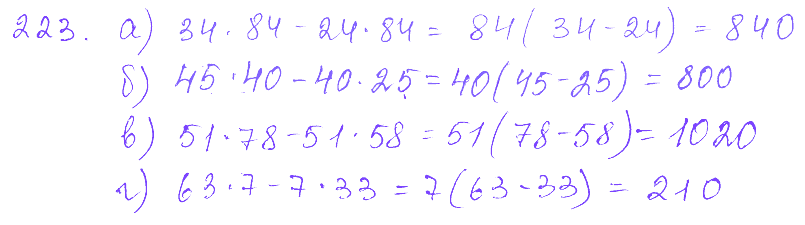 223. а) 34 · 84 - 24 · 84 = 84 ( 34 - 24) = 840
б) 45 · 40 - 40 · 25 = 40 (45 - 25) = 800
в) 51 · 78 - 51 · 58 = 51 (78 - 58) = 1020
г) 63 · 7 - 7 · 33 = 7 (63 - 33) = 210